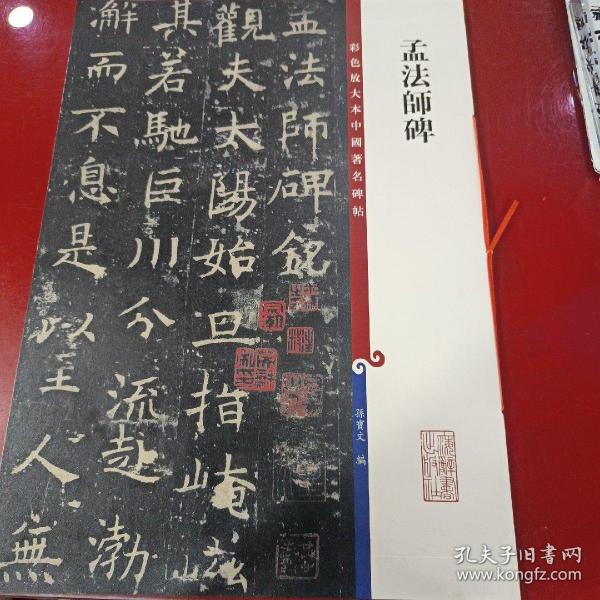 孟法師碑
彩色放大本中國著名碑帖
孫寶文 編
上海辭書
出版社
孟法師碑銘
觀夫太陽始旦指崦嵫
其若馳巨川分流赴渤
澥而不息是以至人無
孔夫子旧书网
www.kongfz.com